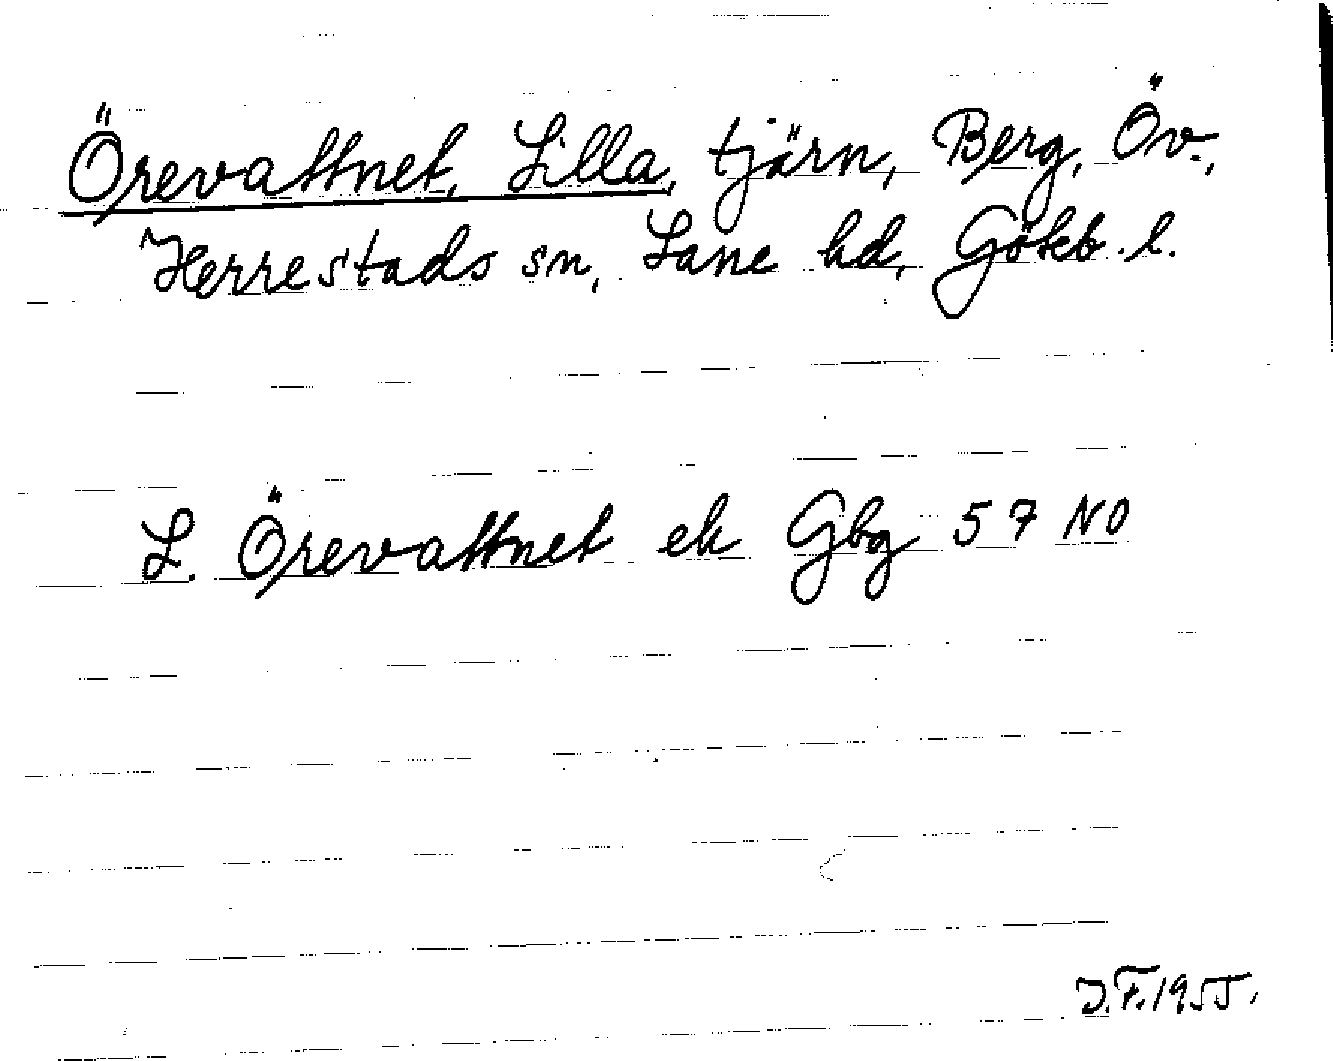 Örevattnet, Lilla, tjärn, Berg, Öv.,
Herrestads sn, Lane hd, Götkb. l.
L. Örevattnet ek Gbg 57 NO
J.F. 1955.